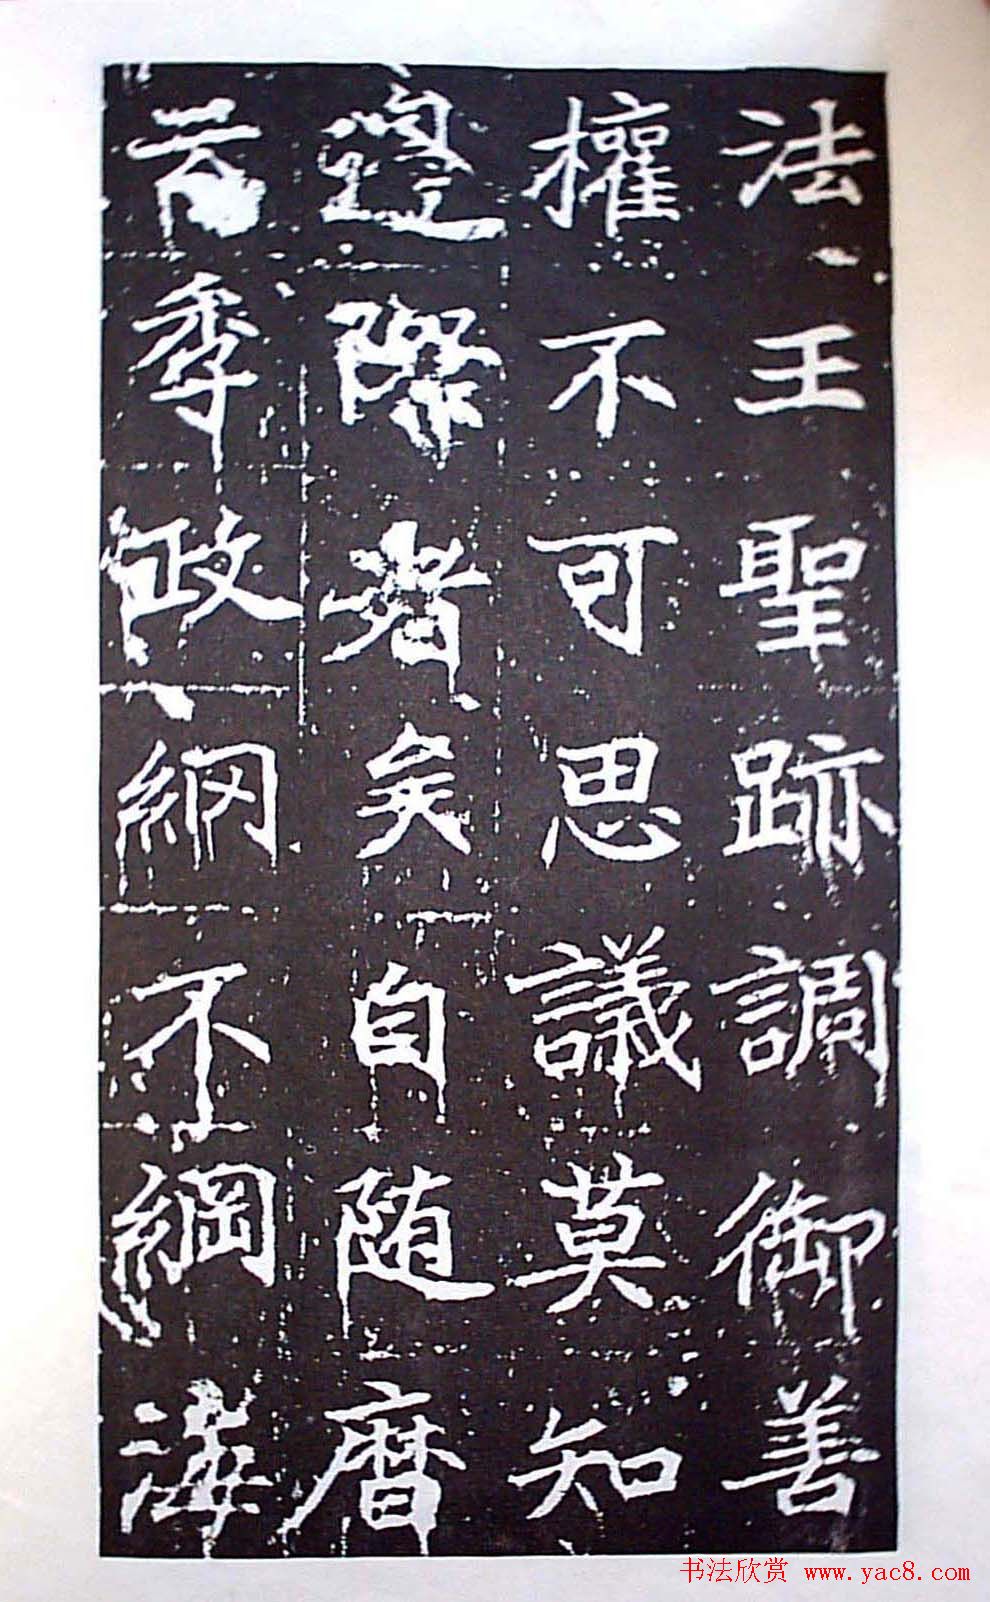 法王聖跡調御善
權不可思議莫知
邊際者矣自随
季政網不綱海
书法欣赏 www.yac8.com